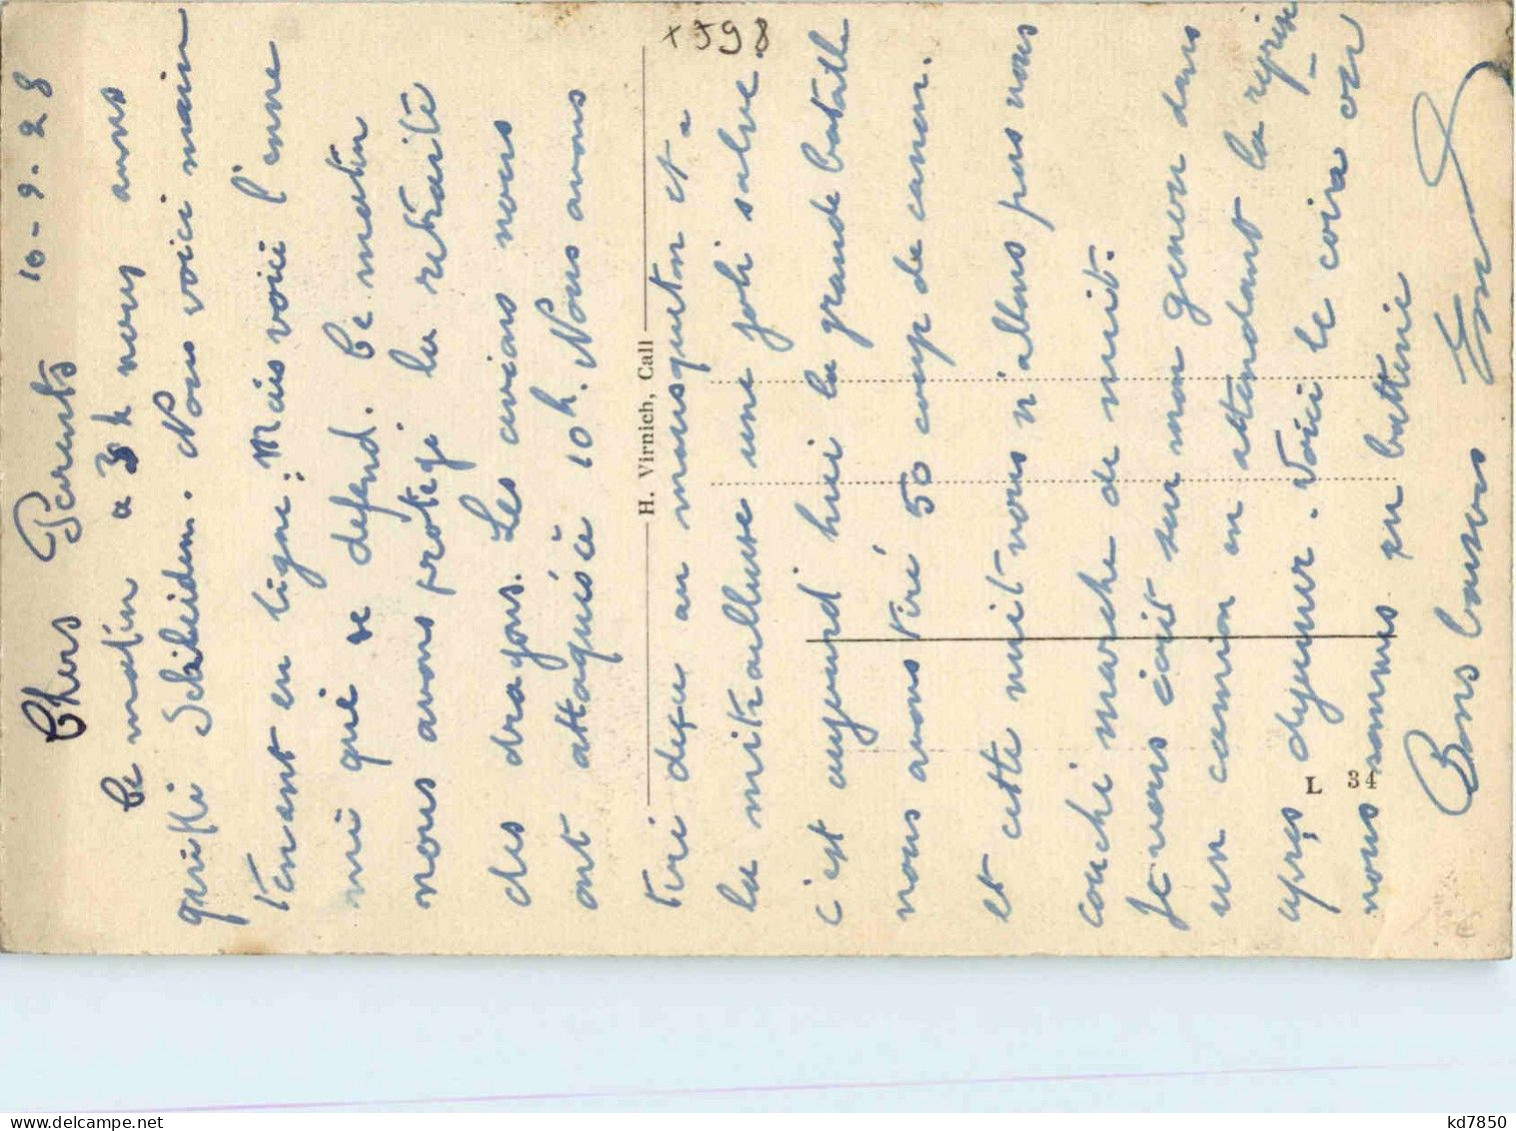 Chers Parents 10-9.28
Ce matin a 3h nous avons
quitté Schleiden. Nous voici main
tenant en ligne. Mais voici l'enne
mi qui se defend. Ce matin
nous avons protegé la retraite
des dragons. Les avions nous
ont attaqués à 10h. Nous avons
tiré deçu au mousqueton et a
la mitrailleuse une joli salve.
c'est aujourd'hui la grande bataille
nous avons tiré 50 coup de canon.
et cette nuit nous n'allons pas nous
couché marche de nuit.
Je vous écrit sur mon genou dans
un camion en attendant la reprise
après dejeuner. Voici le coin où
nous sommes en batterie
Bons baisers
+598
H. Virnich, Call
L 34
kd7850